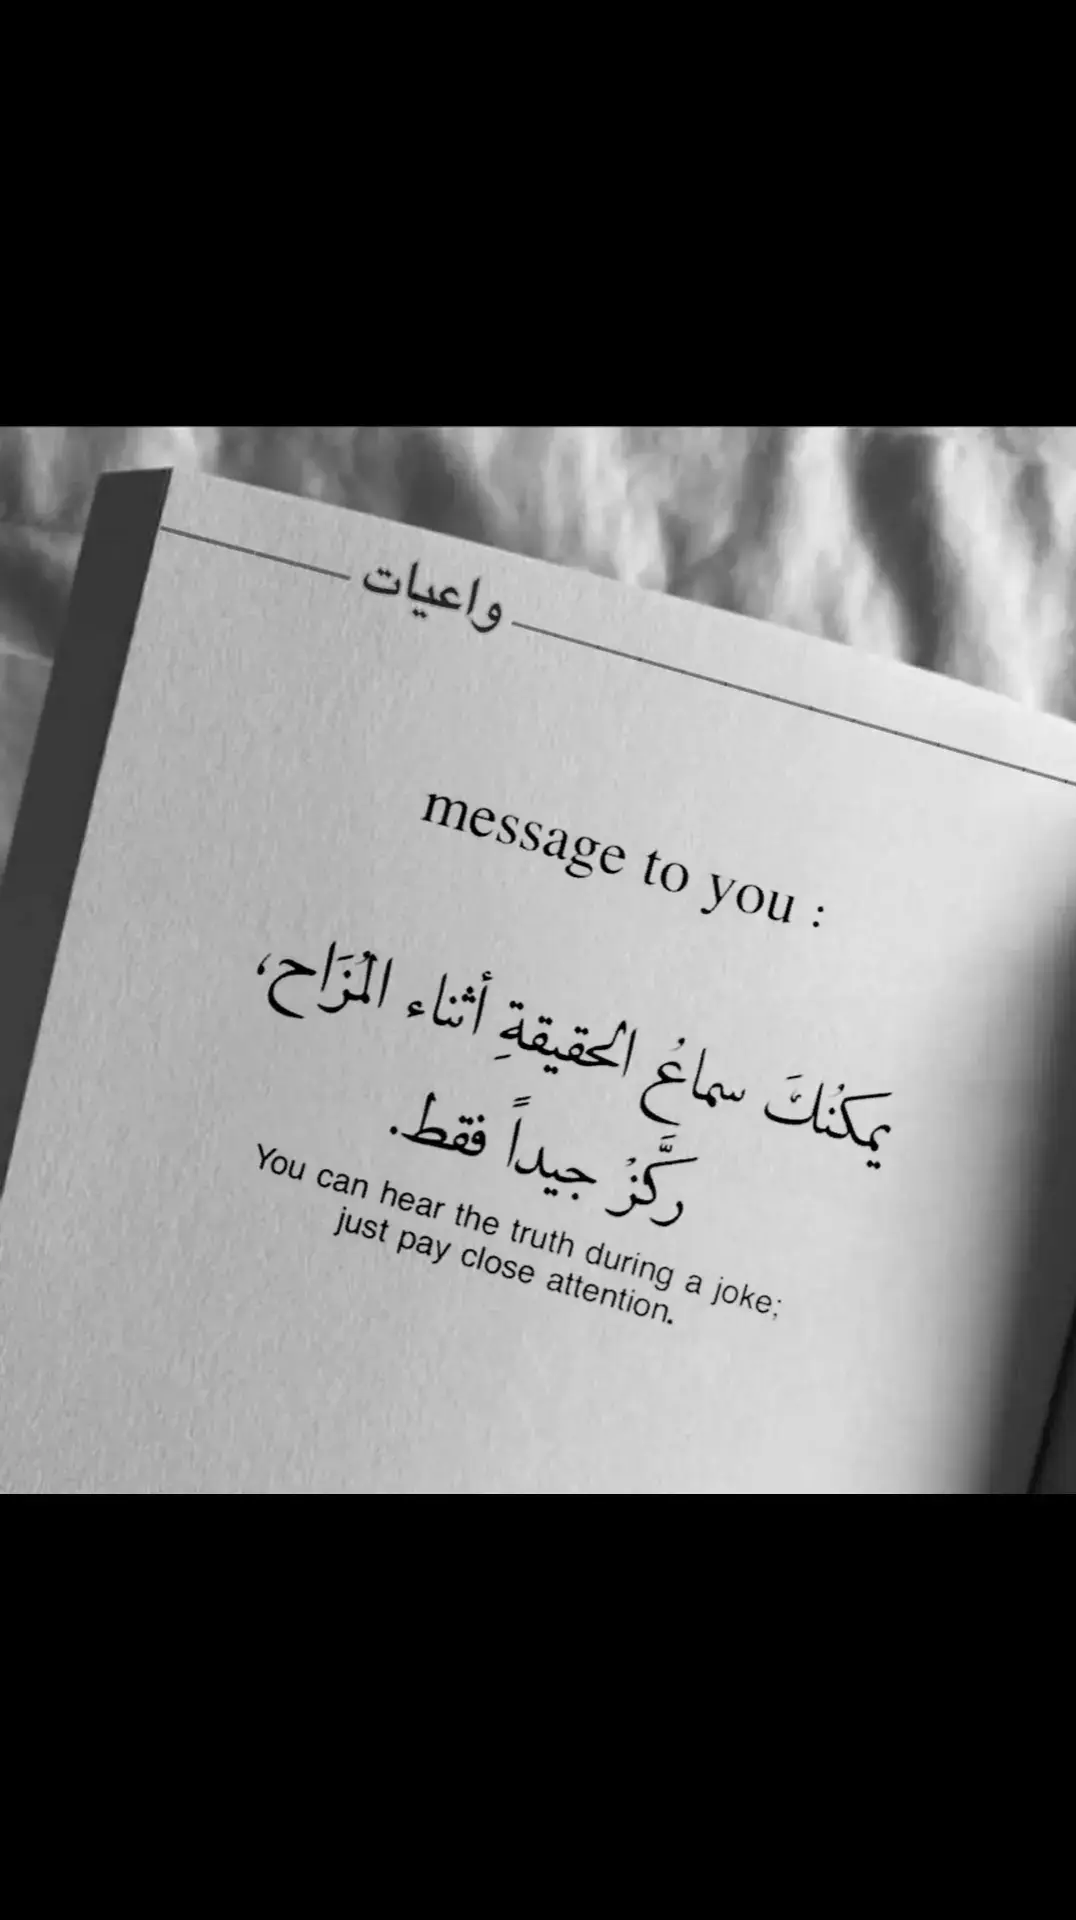 واعيات
message to you :
يمكنُكَ سماعُ الحقيقةِ أثناء المُزَاح،
ركَّزْ جيداً فقط.
You can hear the truth during a joke;
just pay close attention.